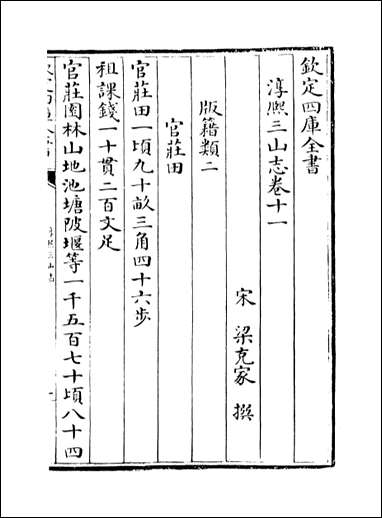 欽定四庫全書
淳熙三山志卷十一
宋 梁克家 撰
版籍類二
官莊田
官莊田一頃九十畝三角四十六步
租課錢一十貫二百文足
官莊園林山地池塘陂堰等一千五百七十頃八十四
淳熙三山志